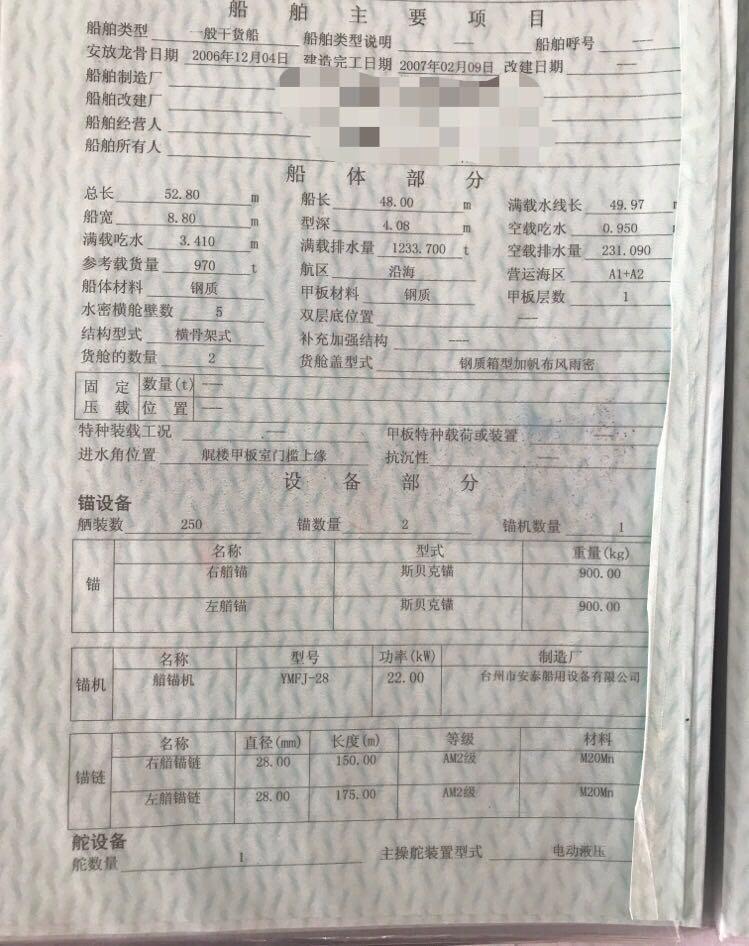 船舶主要项目
船舶类型 一般干货船 船舶类型说明 —— 船舶呼号 ——
安放龙骨日期 2006年12月04日 建造完工日期 2007年02月09日 改建日期 ——
船舶制造厂
船舶改建厂
船舶经营人
船舶所有人
船体部分
总长 52.80 m 船长 48.00 m 满载水线长 49.97
船宽 8.80 m 型深 4.08 m 空载吃水 0.950
满载吃水 3.410 m 满载排水量 1233.700 t 空载排水量 231.090
参考载货量 970 t 航区 沿海 营运海区 A1+A2
船体材料 钢质 甲板材料 钢质 甲板层数 1
水密横舱壁数 5 双层底位置 ——
结构型式 横骨架式 补充加强结构 ——
货舱的数量 2 货舱盖型式 钢质箱型加帆布风雨密
固定 数量(t) ——
压载 位置 ——
特种装载工况 —— 甲板特种载荷或装置 ——
进水角位置 艉楼甲板室门槛上缘 抗沉性 ——
设备部分
锚设备
舾装数 250 锚数量 2 锚机数量 1
锚 名称 型式 重量(kg)
右艏锚 斯贝克锚 900.00
左艏锚 斯贝克锚 900.00
锚机 名称 型号 功率(kW) 制造厂
艏锚机 YMFJ-28 22.00 台州市安泰船用设备有限公司
锚链 名称 直径(mm) 长度(m) 等级 材料
右艏锚链 28.00 150.00 AM2级 M20Mn
左艏锚链 28.00 175.00 AM2级 M20Mn
舵设备
舵数量 1 主操舵装置型式 电动液压